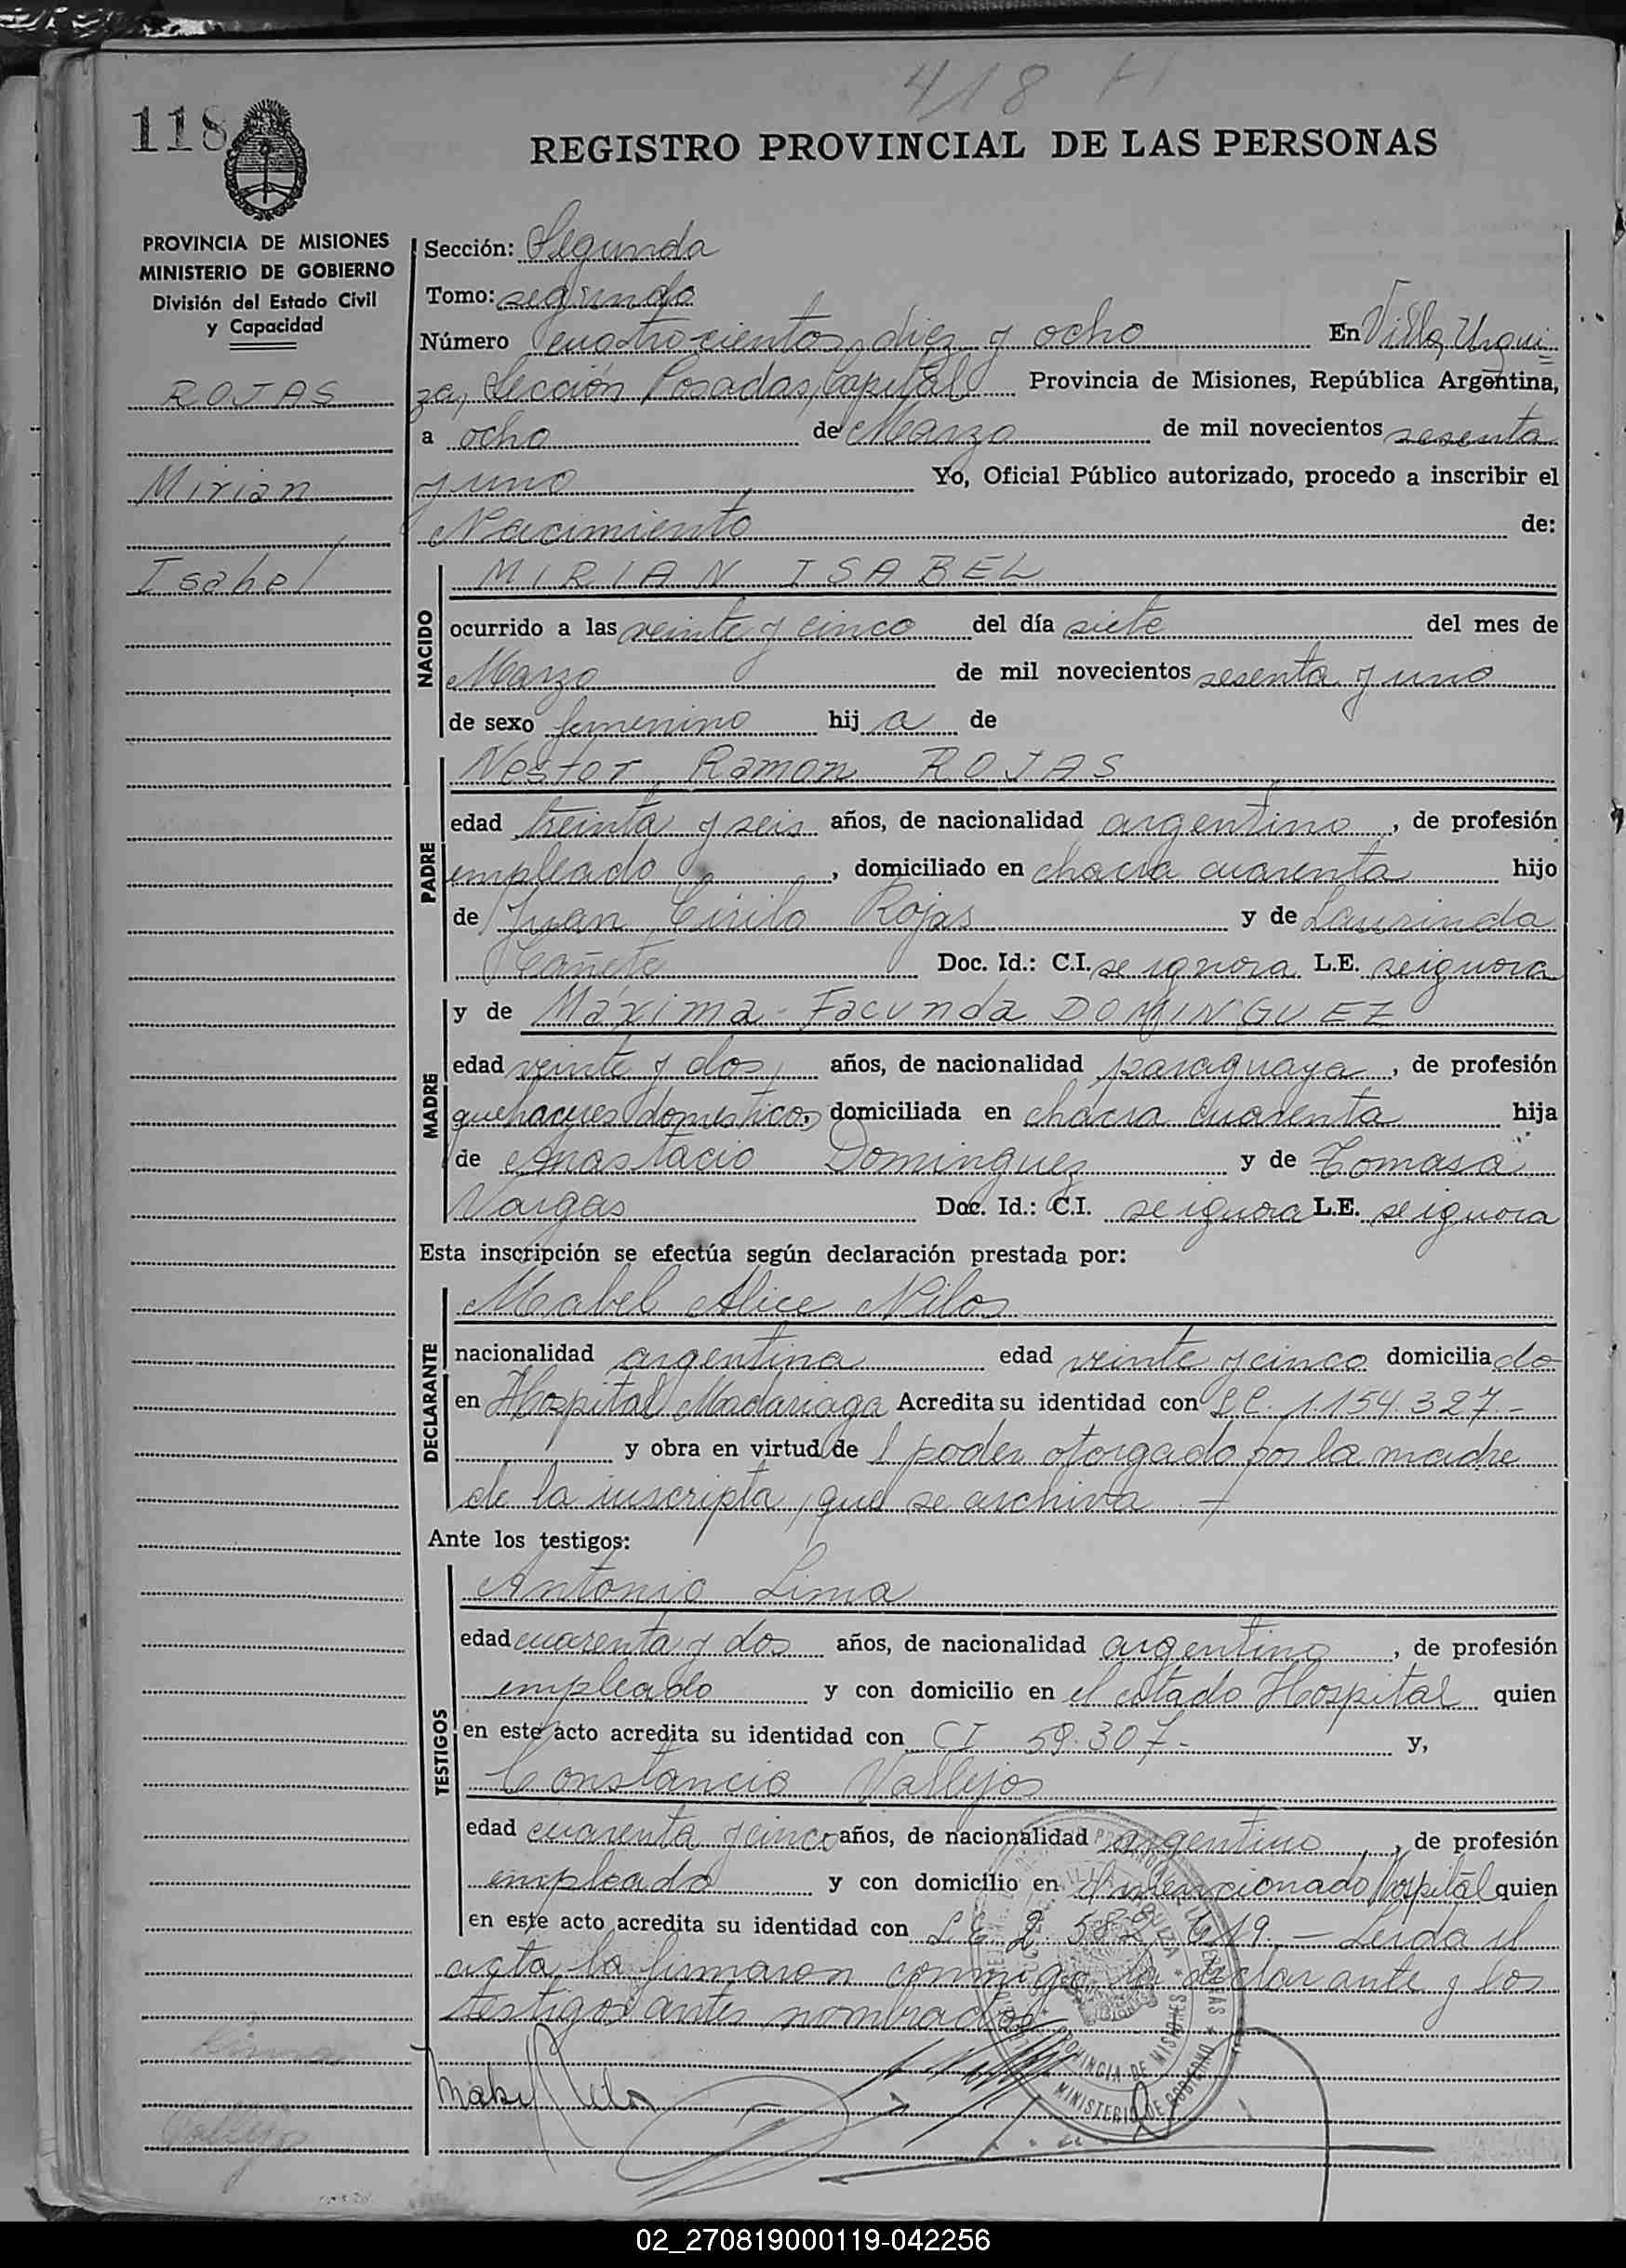 418
118
REGISTRO PROVINCIAL DE LAS PERSONAS
PROVINCIA DE MISIONES
MINISTERIO DE GOBIERNO
División del Estado Civil
y Capacidad
ROJAS
Mirian
Isabel
Sección: Segunda
Tomo: segundo
Número cuatrocientos diez y ocho En Villa Urqui
za, Sección Posadas, Capital Provincia de Misiones, República Argentina,
a ocho de Marzo de mil novecientos sesenta
y uno Yo, Oficial Público autorizado, procedo a inscribir el
Nacimiento de:
NACIDO
MIRIAN ISABEL
ocurrido a las veinte y cinco del día siete del mes de
Marzo de mil novecientos sesenta y uno
de sexo femenino hij a de
PADRE
Nestor Ramon ROJAS
edad treinta y seis años, de nacionalidad argentino, de profesión
empleado, domiciliado en chacra cuarenta hijo
de Juan Cirilo Rojas y de Laurinda
Cañete Doc. Id.: C.I. se ignora L.E. se ignora
MADRE
y de Máxima Facunda DOMINGUEZ
edad veinte y dos años, de nacionalidad paraguaya, de profesión
quehaceres domesticos, domiciliada en chacra cuarenta hija
de Anastacio Dominguez y de Tomasa
Vargas Doc. Id.: C.I. se ignora L.E. se ignora
Esta inscripción se efectúa según declaración prestada por:
DECLARANTE
Mabel Alice Nilos
nacionalidad argentina edad veinte y cinco domicilia do
en Hospital Madariaga Acredita su identidad con L.C. 1.154.327.-
y obra en virtud de l poder otorgado por la madre
de la inscripta, que se archiva.
Ante los testigos:
TESTIGOS
Antonio Lima
edad cuarenta y dos años, de nacionalidad argentino, de profesión
empleado y con domicilio en el citado Hospital quien
en este acto acredita su identidad con CI 59.307.- y,
Constancio Vallejos
edad cuarenta y cinco años, de nacionalidad argentino, de profesión
empleado y con domicilio en el mencionado Hospital quien
en este acto acredita su identidad con L.E. 2. 619.- Leida el
acta la firmaron conmigo la declarante y los
testigos antes nombrados
Lima
Vallejo
PROVINCIA DE MISIONES
MINISTERIO DE GOBIERNO
02_270819000119-042256